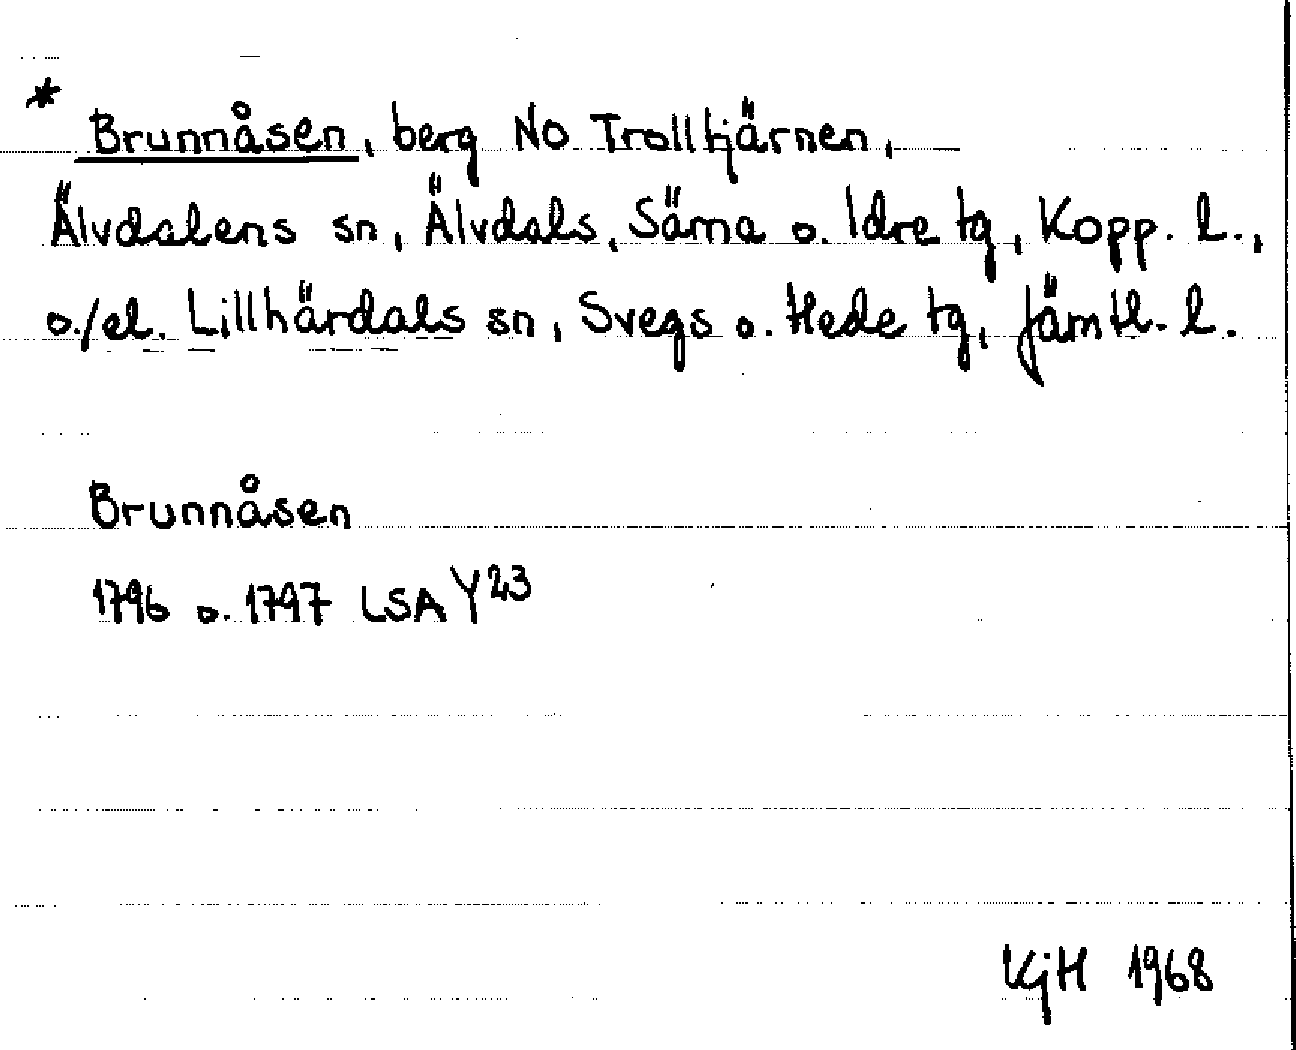 * Brunnåsen, berg NO Trolltjärnen,
Älvdalens sn, Älvdals, Särna o. Idre tg, Kopp. l.,
o./el. Lillhärdals sn, Svegs o. Hede tg, Jämtl. l.
Brunnåsen
1796 o. 1797 LSA Y23
KjH 1968